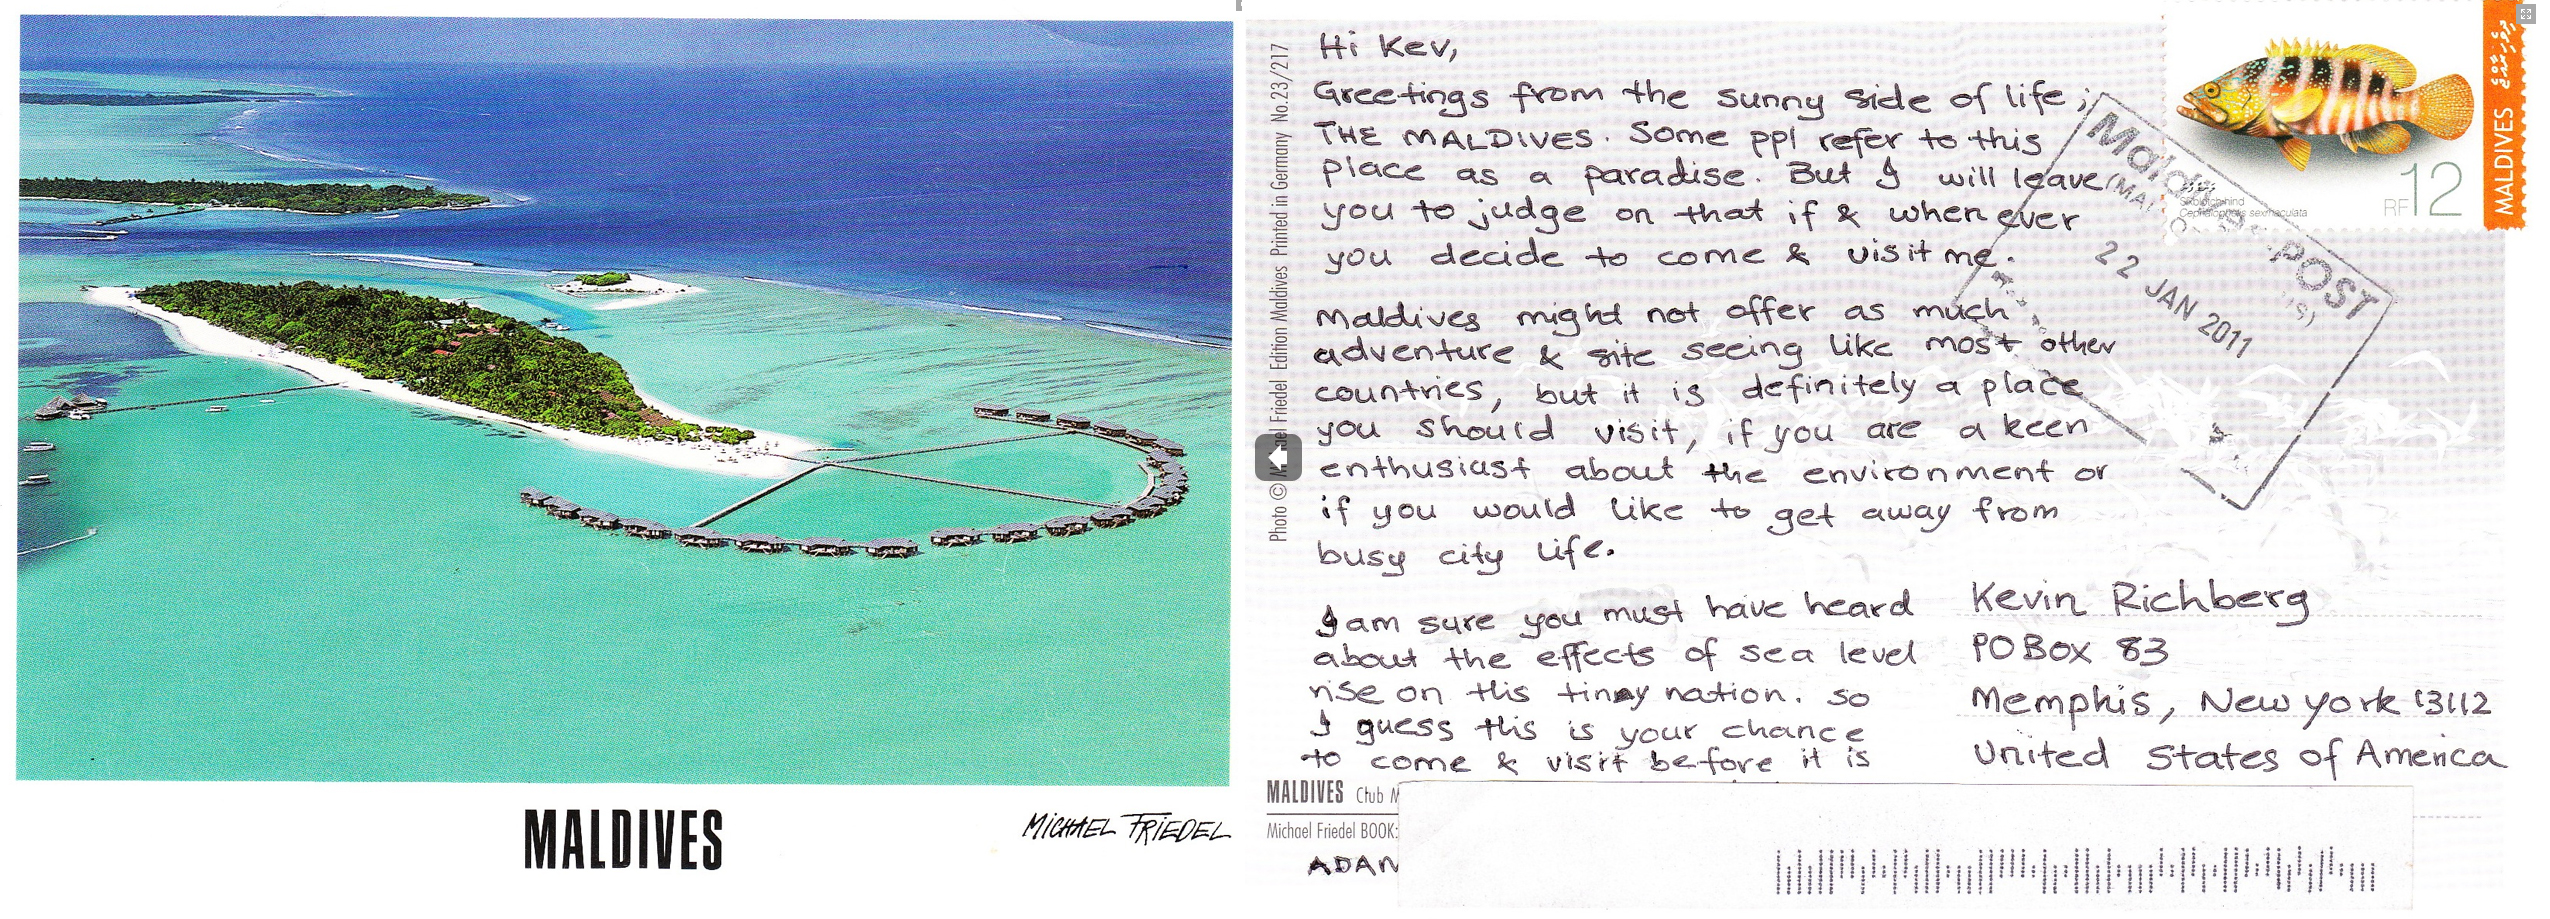 MALDIVES
MICHAEL FRIEDEL
Photo © Friedel Edition Maldives Printed in Germany No.23/217
Hi Kev,
Greetings from the sunny side of life;
THE MALDIVES. Some ppl refer to this
place as a paradise. But I will leave
you to judge on that if & when ever
you decide to come & visit me.
Maldives might not offer as much
adventure & site seeing like most other
countries, but it is definitely a place
you should visit, if you are a keen
enthusiast about the environment or
if you would like to get away from
busy city life.
I am sure you must have heard
about the effects of sea level
rise on this tiny nation. so
I guess this is your chance
to come & visit before it is
MALDIVES Club M
Michael Friedel BOOK:
ADAM
MALDIVES
Cephalopholis sexmaculata
RF12
Maldives POST
22 JAN 2011
Kevin Richberg
PO Box 83
Memphis, New York 13112
United States of America